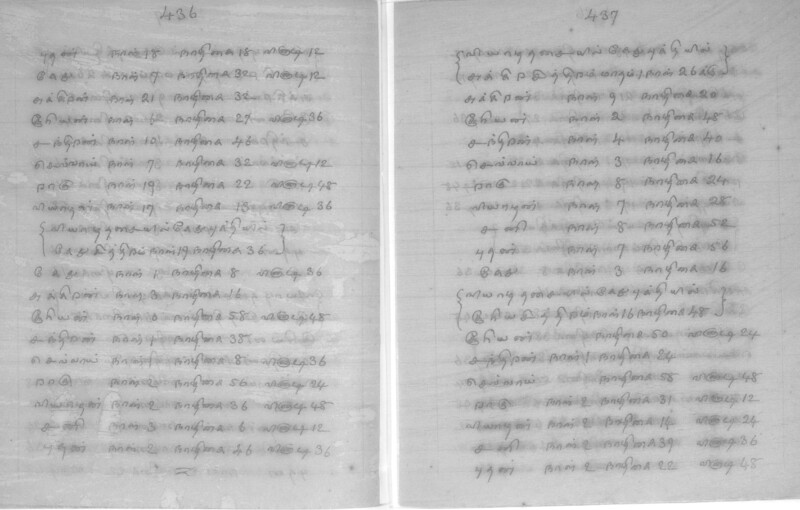 436
புதன் நாள் 18 நாழிகை 18 வினாடி 12
கேது நாள் 7 நாழிகை 32 வினாடி 12
சுக்கிரன் நாள் 21 நாழிகை 32
சூரியன் நாள் நாழிகை 27 வினாடி 36
சந்திரன் நாள் நாழிகை 46
செவ்வாய் நாள் 7 நாழிகை 32 வினாடி 12
ராகு நாள் 19 நாழிகை 22 வினாடி 48
வியாழன் நாள் 17 நாழிகை 13 வினாடி 36
கேது நாள் 19 நாழிகை 36
கேது நாள் 1 நாழிகை 8 வினாடி 36
சுக்கிரன் நாள் 3 நாழிகை 16
சூரியன் நாள் 0 நாழிகை 58 வினாடி 48
சந்திரன் நாள் 1 நாழிகை 38
செவ்வாய் நாள் 1 நாழிகை 8 வினாடி 36
ராகு நாள் 2 நாழிகை 56 வினாடி 24
வியாழன் நாள் 2 நாழிகை 36 வினாடி 48
சனி நாள் 3 நாழிகை 6 வினாடி 12
புதன் நாள் 2 நாழிகை 46 வினாடி 36
437
நாள் 26
சுக்கிரன் நாள் 9 நாழிகை 20
சூரியன் நாள் 2 நாழிகை 48
சந்திரன் நாள் 4 நாழிகை 40
செவ்வாய் நாள் 3 நாழிகை 16
ராகு நாள் 8 நாழிகை 24
வியாழன் நாள் 7 நாழிகை 28
சனி நாள் 8 நாழிகை 52
புதன் நாள் 7 நாழிகை 56
கேது நாள் 3 நாழிகை 16
நாள் 16 நாழிகை 48
சூரியன் நாழிகை 50 வினாடி 24
சந்திரன் நாள் 1 நாழிகை 24
செவ்வாய் நாழிகை 58 வினாடி 48
ராகு நாள் 2 நாழிகை 31 வினாடி 12
வியாழன் நாள் 2 நாழிகை 14 வினாடி 24
சனி நாள் 2 நாழிகை 39 வினாடி 36
புதன் நாள் 2 நாழிகை 22 வினாடி 48